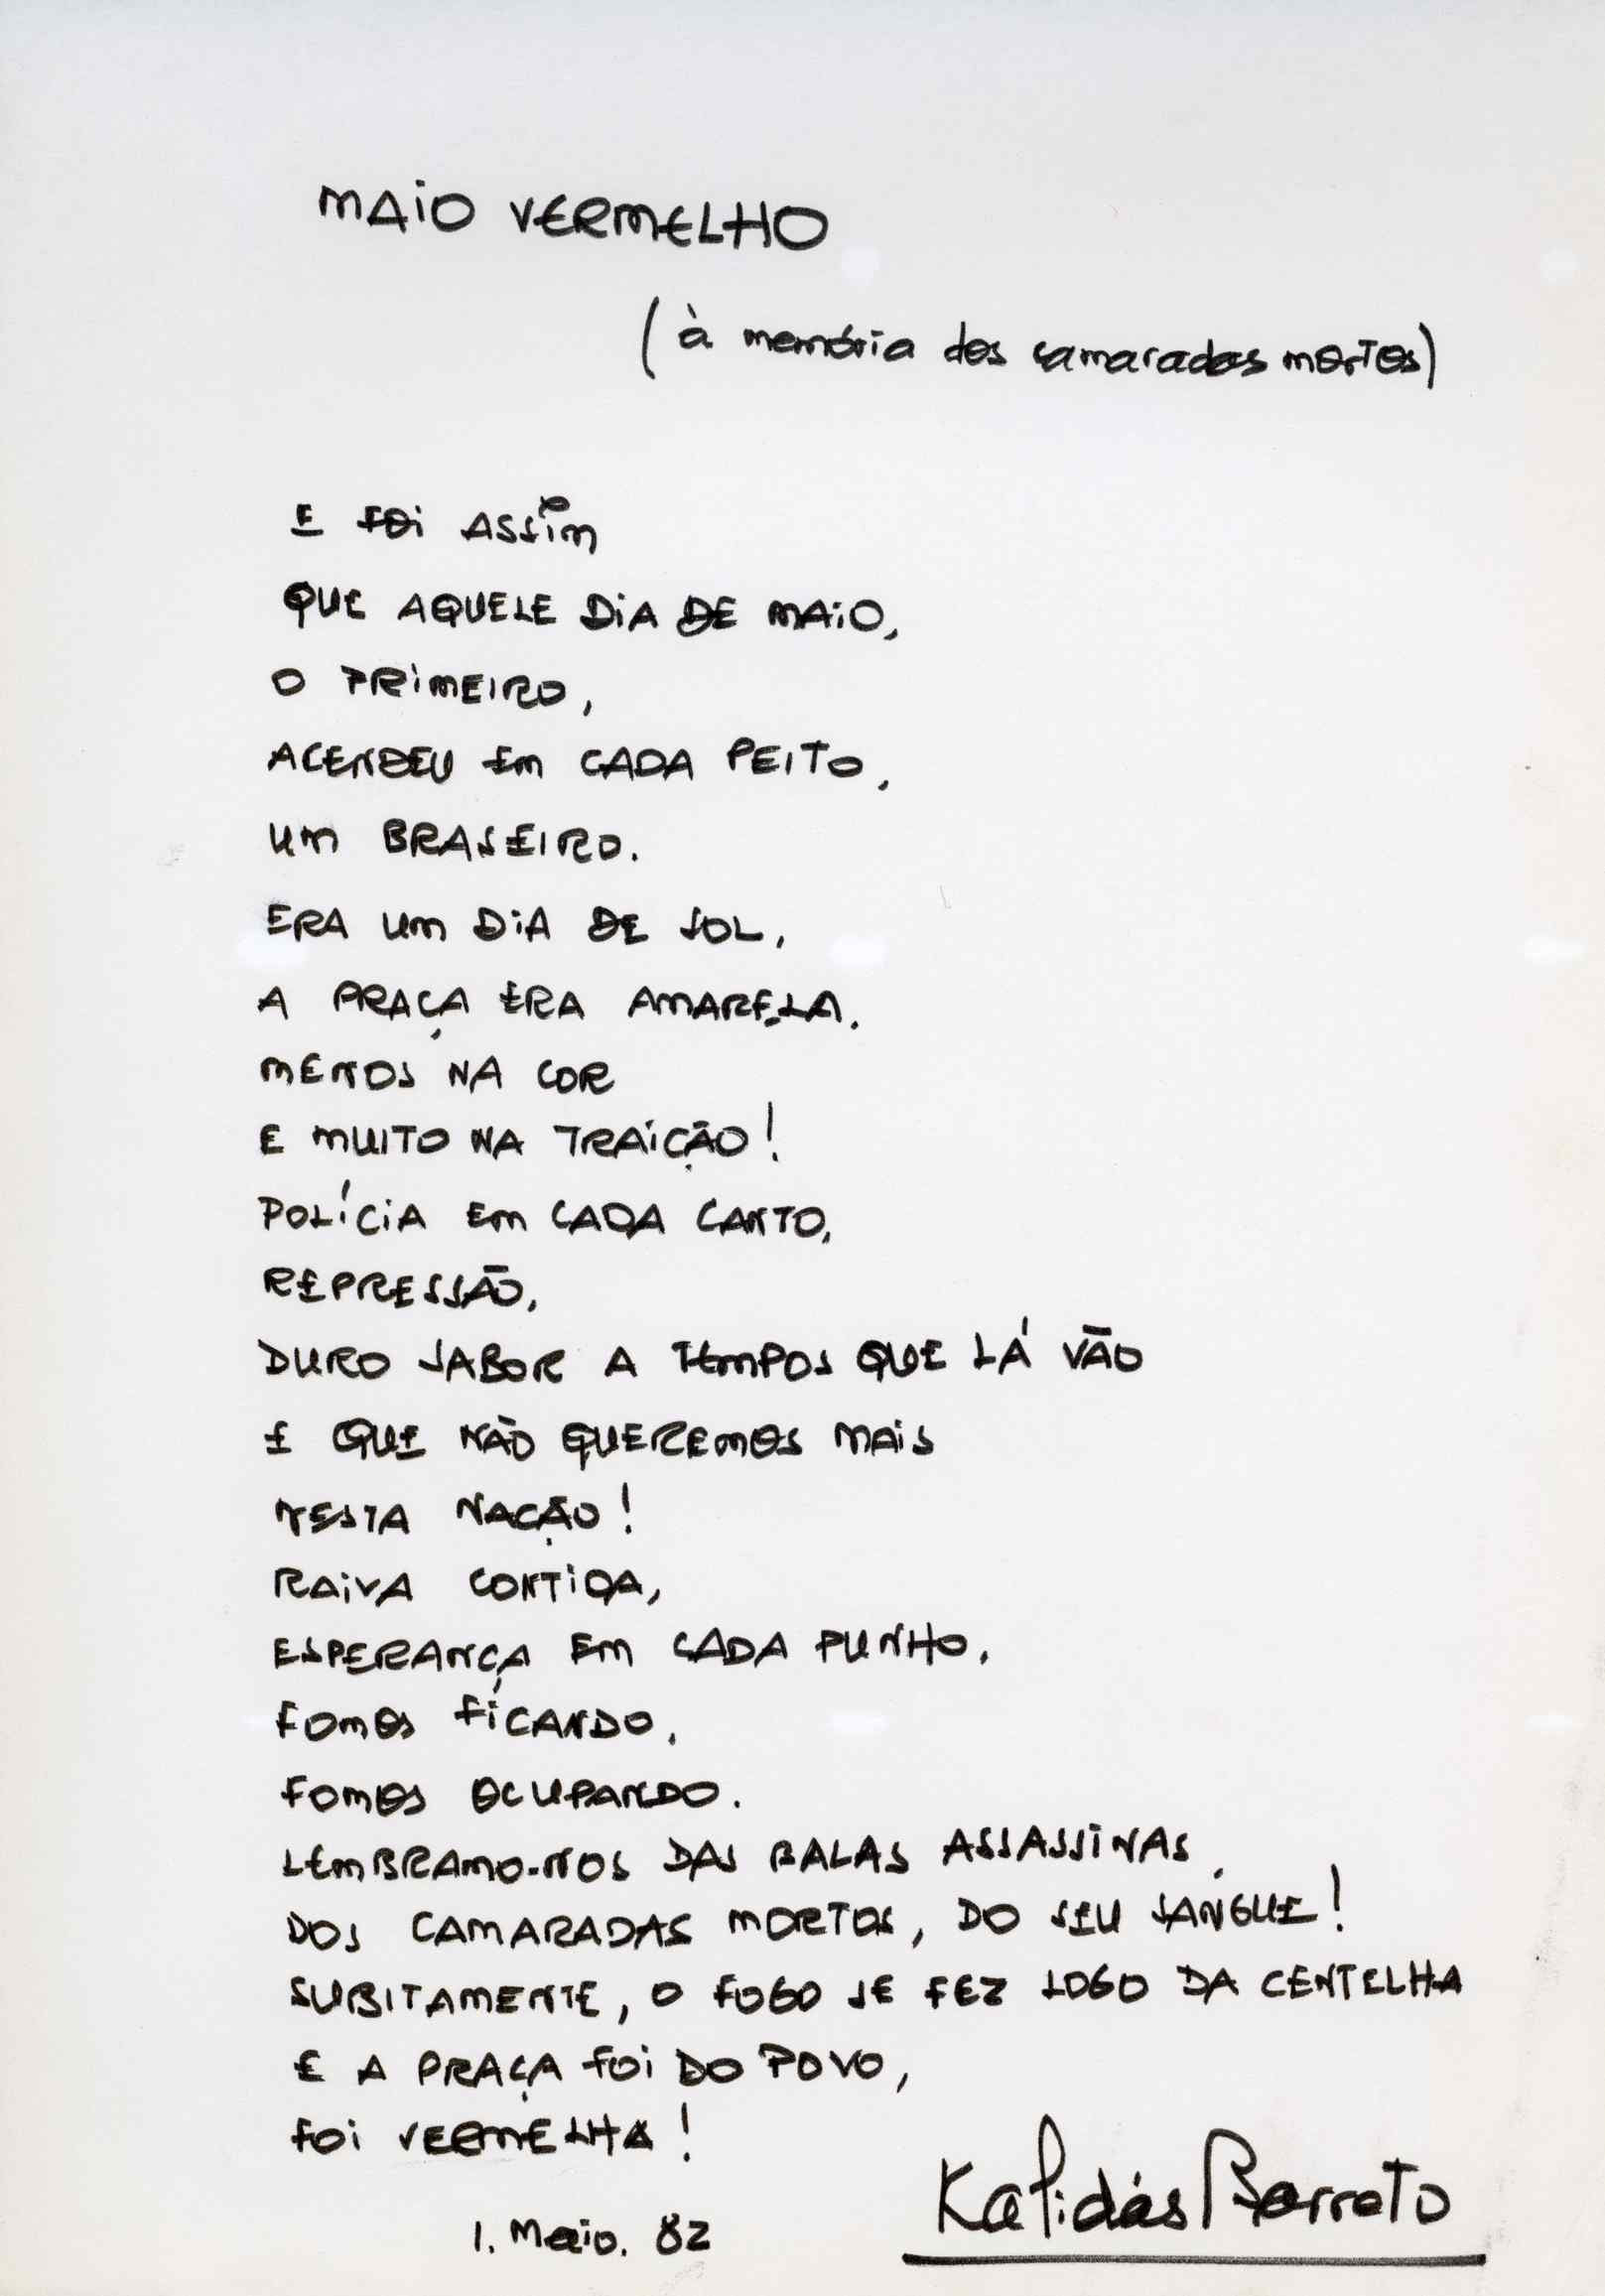 MAIO VERMELHO
(à memória dos camaradas mortos)
E FOI ASSIM
QUE AQUELE DIA DE MAIO,
O PRIMEIRO,
ACENDEU EM CADA PEITO,
UM BRASEIRO.
ERA UM DIA DE SOL,
A PRAÇA ERA AMARELA.
MENOS NA COR
E MUITO NA TRAIÇÃO!
POLÍCIA EM CADA CANTO,
REPRESSÃO,
DURO SABOR A TEMPOS QUE LÁ VÃO
E QUE NÃO QUEREMOS MAIS
NESTA NAÇÃO!
RAIVA CONTIDA,
ESPERANÇA EM CADA PUNHO,
FOMOS FICANDO,
FOMOS OCUPANDO.
LEMBRAMO-NOS DAS BALAS ASSASSINAS,
DOS CAMARADAS MORTOS, DO SEU SANGUE!
SUBITAMENTE, O FOGO SE FEZ LOGO DA CENTELHA
E A PRAÇA FOI DO POVO,
FOI VERMELHA!
1. Maio. 82
Kalidás Barreto